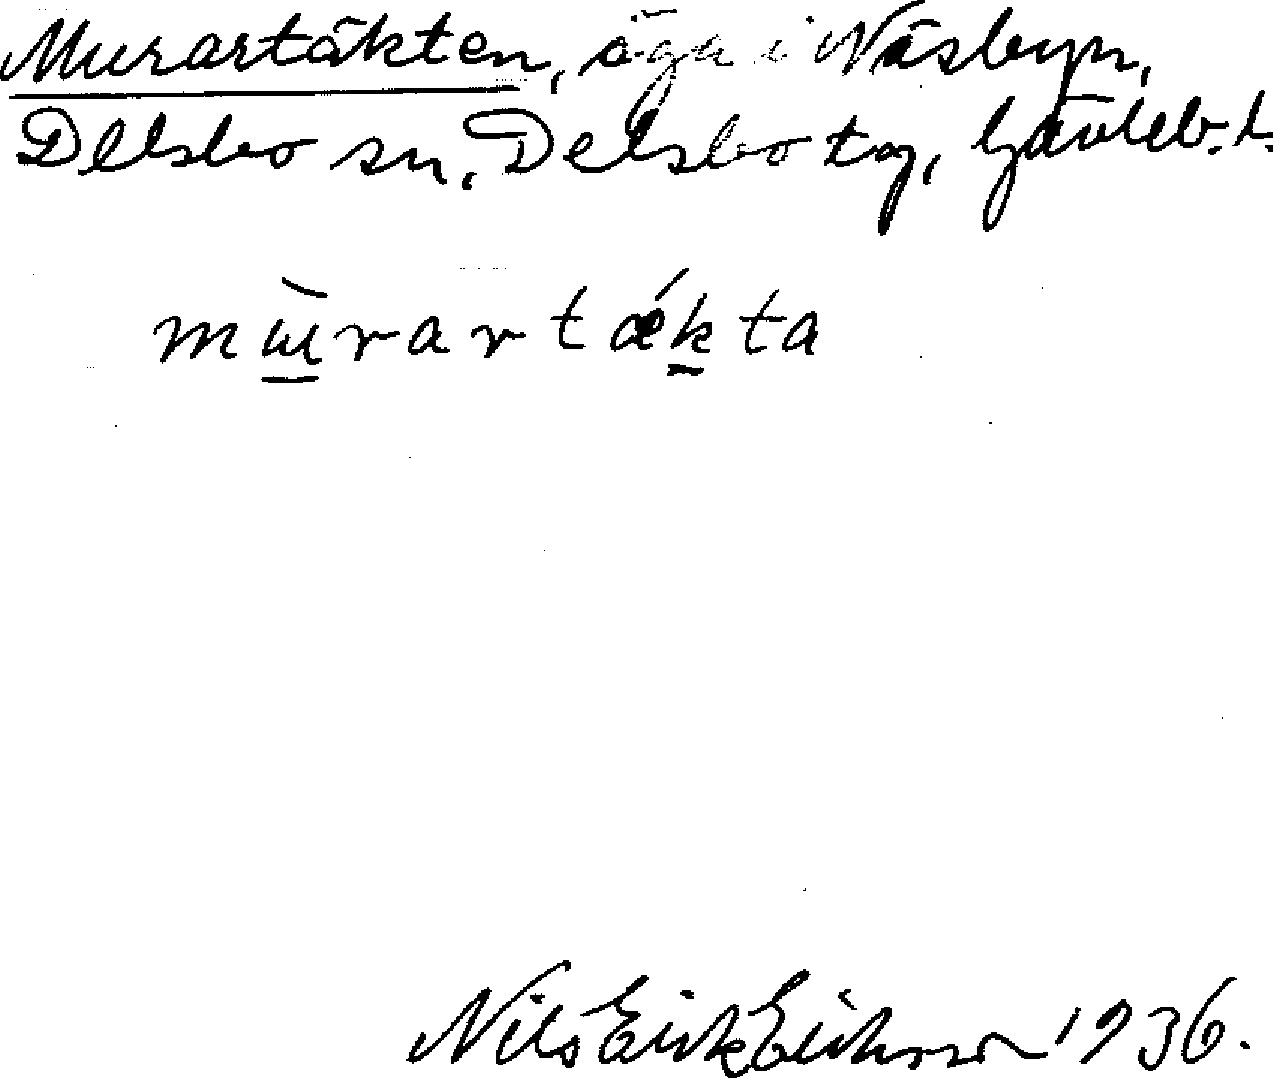 Murartäkten, äga i Näsbyn,
Delsbo sn, Delsbo tg, Gävleb. l.
mùrartǽkta
Nils Erik Eriksson 1936.